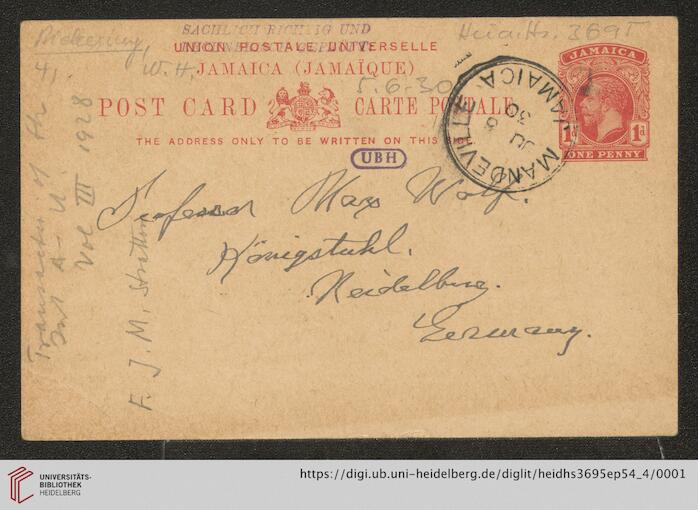 SACHLICH RICHTIG UND
Pickering,
W. H.
Heid. Hs. 3695
UNION POSTALE UNIVERSELLE
JAMAICA (JAMAÏQUE)
5.6.30
POST CARD
CARTE POSTALE
THE ADDRESS ONLY TO BE WRITTEN ON THIS SIDE
UBH
MANDEVILLE
JU 8
30
JAMAICA
JAMAICA
1d
1d
ONE PENNY
Professor Max Wolf.
Königstuhl.
Heidelberg.
Germany.
Transactns of the
Int A. U.
Vol III 1928
F. J. M. Stratton
UNIVERSITÄTS-
BIBLIOTHEK
HEIDELBERG
https://digi.ub.uni-heidelberg.de/diglit/heidhs3695ep54_4/0001